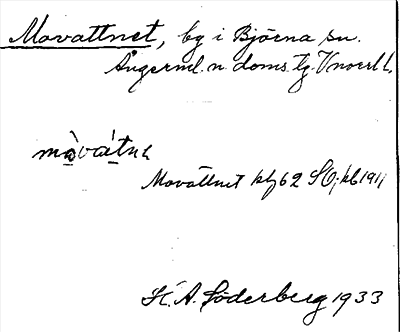 Movattnet, by i Björna sn.
Ångerml. n. doms. tg. Vnorrl l.
mò̱vát̲nɩ
Movattnet kbl 62 SO, kb 1911
K. A. Söderberg 1933